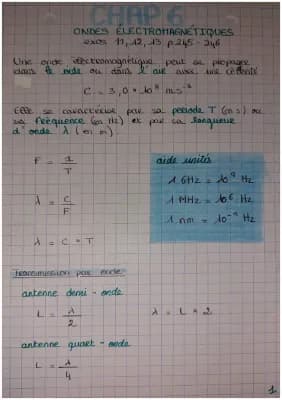 CHAP 6
ONDES ÉLECTROMAGNÉTIQUES
exos 11, 12, 13 p 245 - 246
Une onde électromagnétique peut se propager
dans le vide ou dans l'air avec une célérité
C = 3,0 × 10⁸ m.s⁻¹
Elle se caractérise par sa période T (en s) ou
sa fréquence (en Hz) et par sa longueur
d'onde λ (en m).
F = 1/T
λ = C/F
λ = C × T
aide unités
1 GHz = 10⁹ Hz
1 MHz = 10⁶ Hz
1 nm = 10⁻⁹ Hz
Transmission par onde
antenne demi - onde
L = λ/2
λ = L × 2
antenne quart - onde
L = λ/4
1